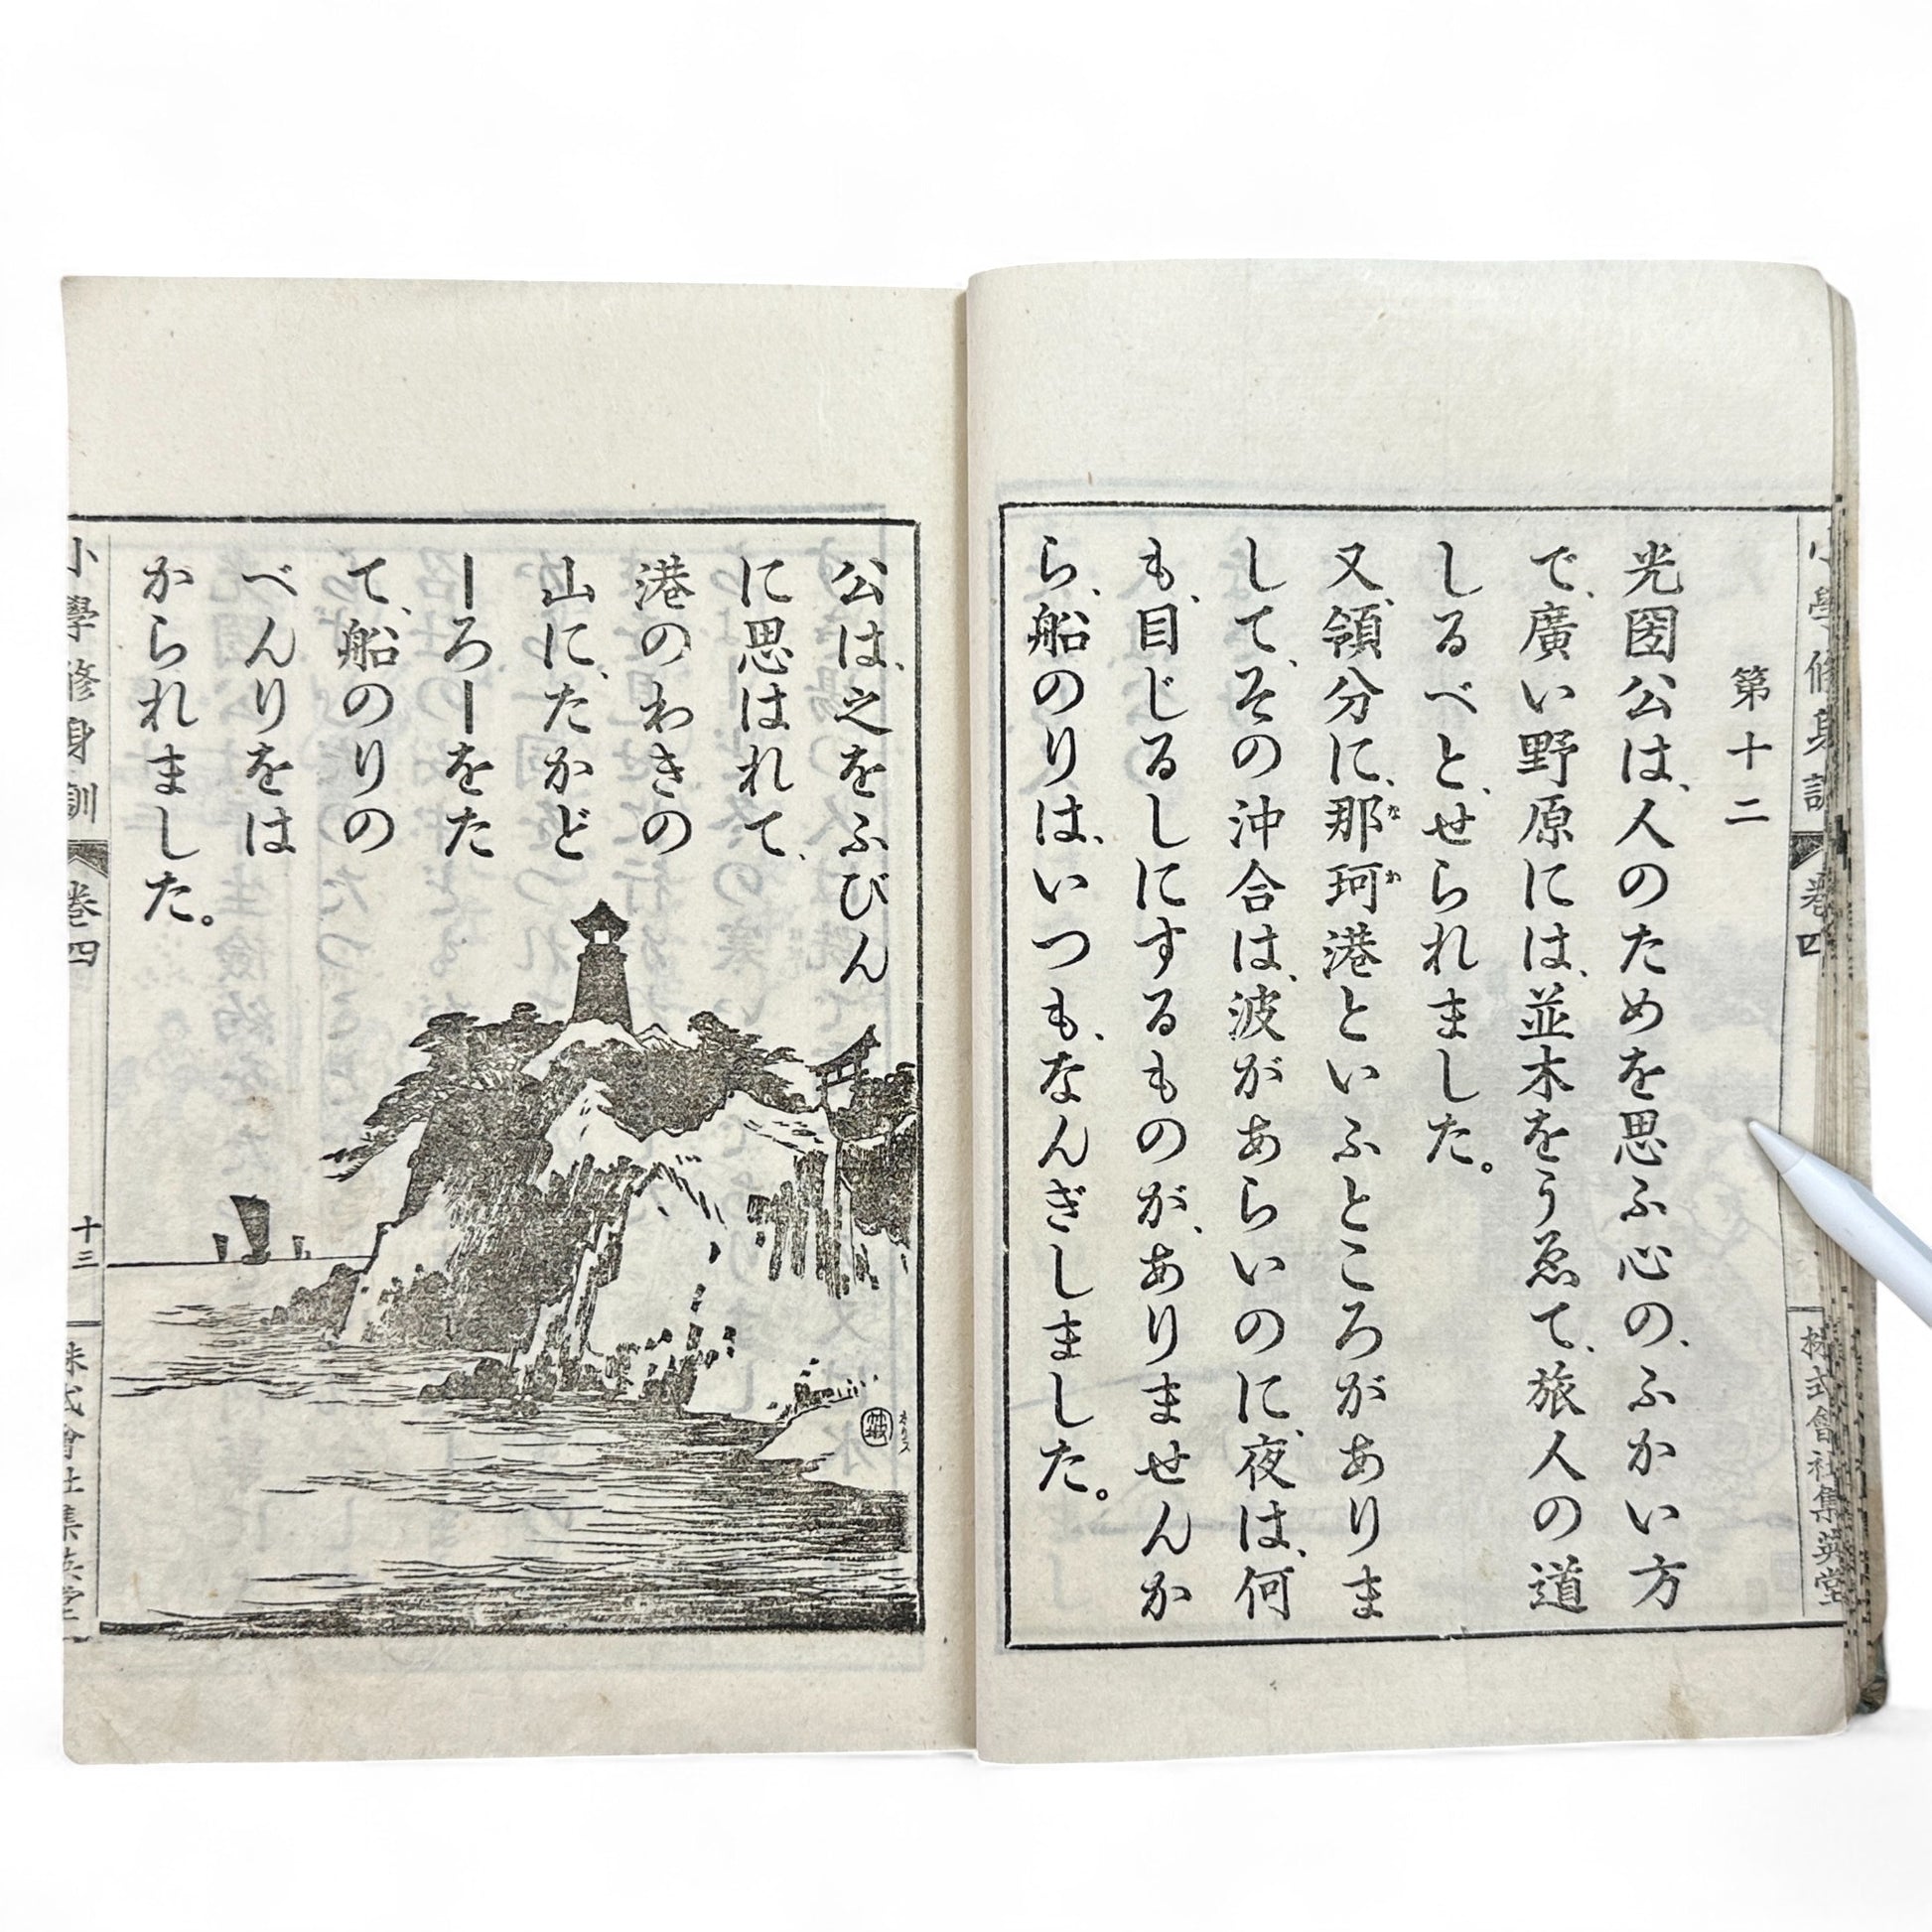 小學修身訓 卷四 株式會社集英堂
第十二
光圀公は、人のためを思ふ心の、ふかい方
で、廣い野原には、並木をうゑて、旅人の道
しるべと、せられました。
又、領分に、那珂港といふところがありま
して、その沖合は、波があらいのに、夜は、何
も、目じるしにするものが、ありませんか
ら、船のりは、いつも、なんぎしました。
なか
公は、之をふびん
に思はれて、
港のわきの
山に、たかど
ーろーをた
て、船のりの
べんりをは
かられました。
小學修身訓 卷四 十三 株式會社集英堂